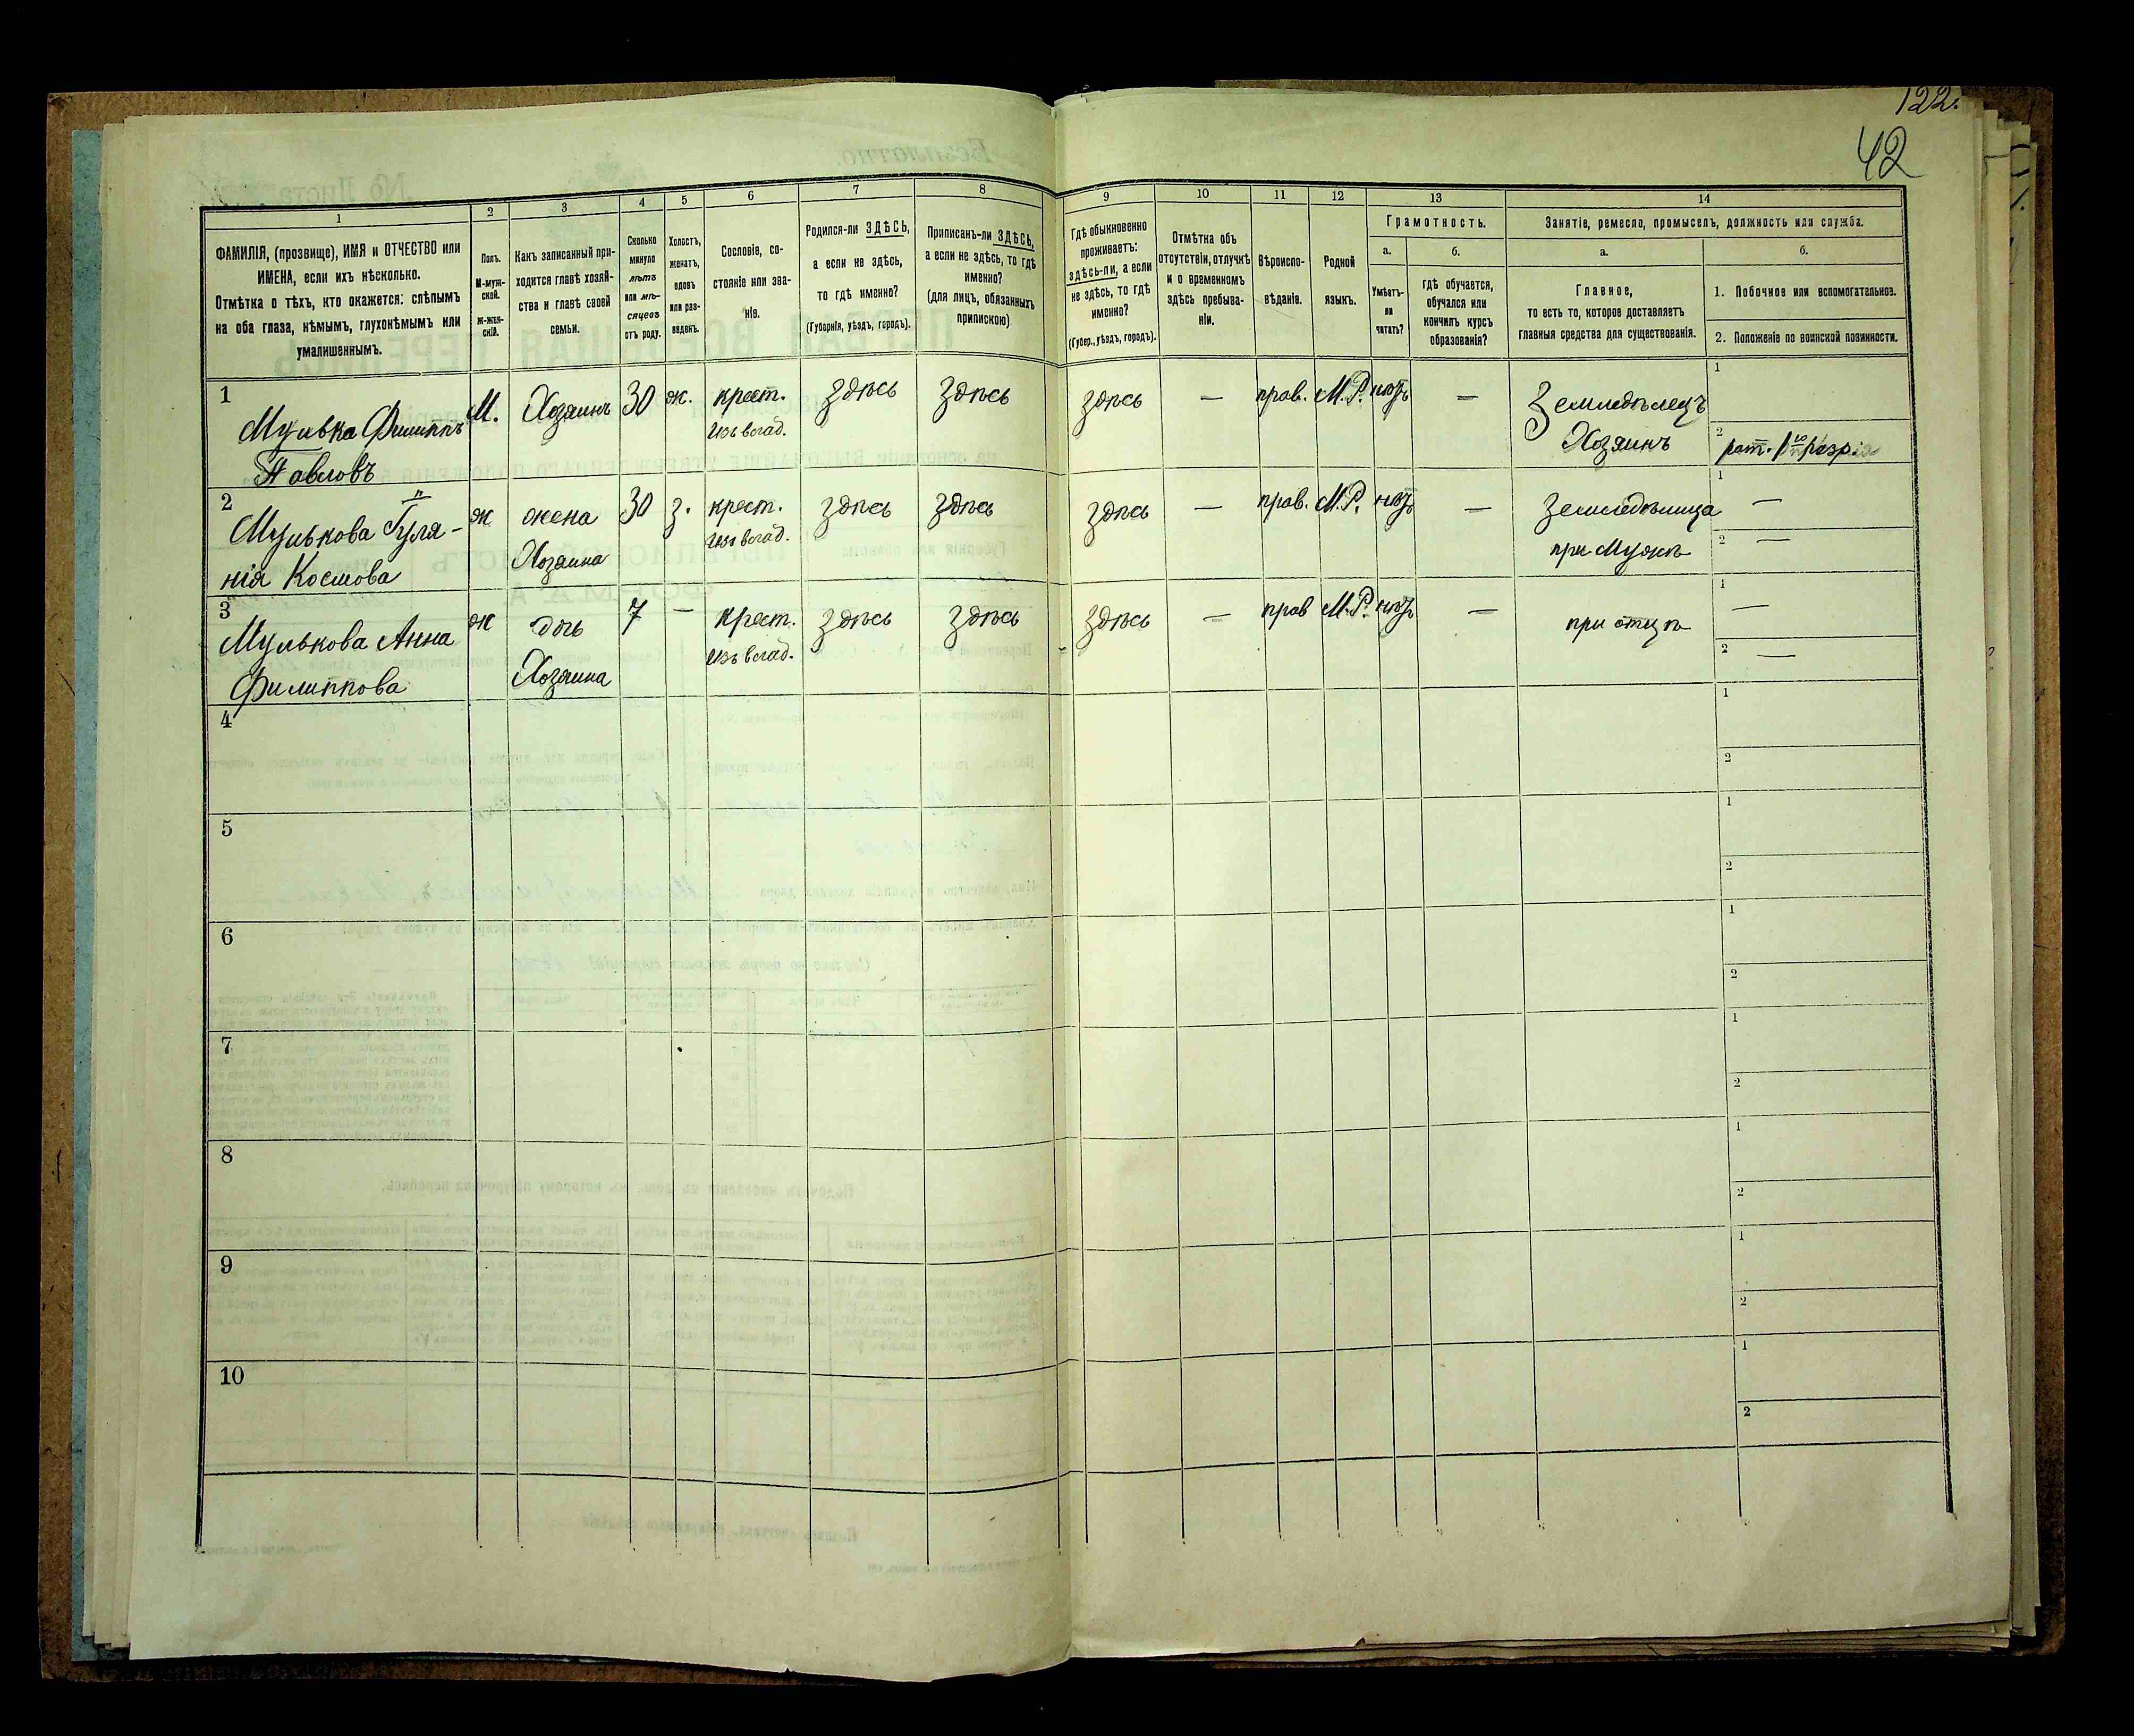 122.
42
1
2
3
4
5
6
7
8
9
10
11
12
13
14
ФАМИЛІЯ, (прозвище), ИМЯ и ОТЧЕСТВО или
ИМЕНА, если ихъ нѣсколько.
Отмѣтка о тѣхъ, кто окажется: слѣпымъ
на оба глаза, нѣмымъ, глухонѣмымъ или
умалишеннымъ.
Полъ.
М-муж-
ской.
Ж-жен-
скій.
Какъ записанный при-
ходится главѣ хозяй-
ства и главѣ своей
семьи.
Сколько
минуло
лѣтъ
или мѣ-
сяцевъ
отъ роду.
Холостъ,
женатъ,
вдовъ
или раз-
веденъ.
Сословіе, со-
стояніе или зва-
ніе.
Родился-ли ЗДѢСЬ,
а если не здѣсь,
то гдѣ именно?
(Губернія, уѣздъ, городъ).
Приписанъ-ли ЗДѢСЬ,
а если не здѣсь, то гдѣ
именно?
(для лицъ, обязанныхъ
припискою)
Гдѣ обыкновенно
проживаетъ:
здѣсь-ли, а если
не здѣсь, то гдѣ
именно?
(Губер., уѣздъ, городъ).
Отмѣтка объ
отсутствіи, отлучкѣ
и о временномъ
здѣсь пребыва-
ніи.
Вѣроиспо-
вѣданіе.
Родной
языкъ.
Грамотность.
а.
Умѣетъ-
ли
читать?
б.
гдѣ обучается,
обучался или
кончилъ курсъ
образованія?
Занятіе, ремесло, промыселъ, должность или служба.
а.
Главное,
то есть то, которое доставляетъ
главныя средства для существованія.
б.
1. Побочное или вспомогательное.
2. Положеніе по воинской повинности.
1
Мулька Филиппъ
Павловъ
М.
Хозяинъ
30
ж.
крест.
изъ влад.
здѣсь
здѣсь
здѣсь
—
прав.
М.Р.
нѣтъ
—
Земледѣлецъ
Хозяинъ
1
2
рат. 1
2
Мулькова
нія
ж
жена
Хозяина
30
з.
крест.
изъ влад.
здѣсь
здѣсь
здѣсь
—
прав.
М.Р.
нѣтъ
—
Земледѣлица
при Мужѣ
1
—
2
—
3
Мулькова Анна
Филиппова
ж
дочь
Хозяина
7
—
крест.
изъ влад.
здѣсь
здѣсь
здѣсь
—
прав
М.Р.
нѣтъ
—
при отцѣ
1
—
2
—
4
1
2
5
1
2
6
1
2
7
1
2
8
1
2
9
1
2
10
1
2